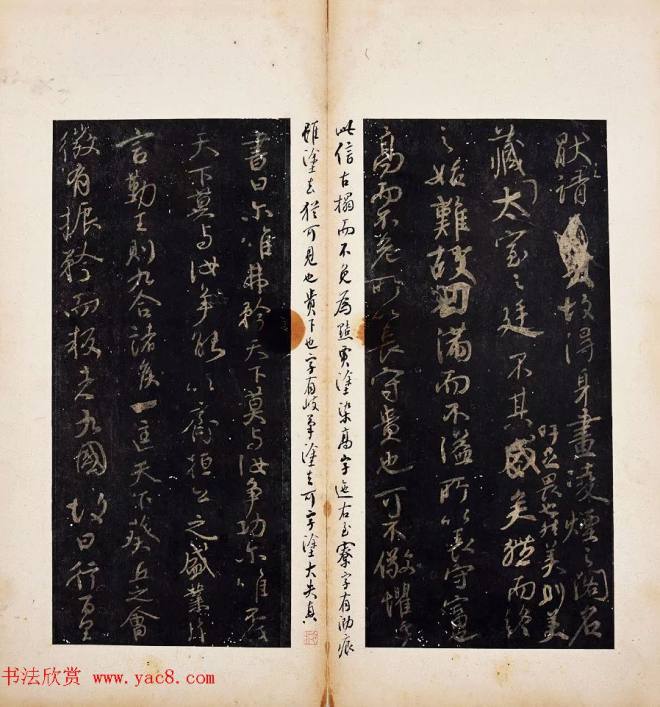 猒之請故得身畫凌煙之閣名
藏太室之廷不其盛矣然而終
吁足畏也然美則美
之始難故曰滿而不溢所以長守富
高而不危所以長守貴也可不儆懼乎
此信古搨而不免為點賈塗染高字迤右至寮字有泐痕
雖塗去猶可見也貴下也字有歧筆塗去可字塗大失真
書曰爾唯弗矜天下莫與汝爭功爾唯不伐
天下莫與汝爭能以齊桓公之盛業片
言勤王則九合諸侯一匡天下葵丘之會
微有振矜而叛者九國故曰行百里
书法欣赏 www.yac8.com